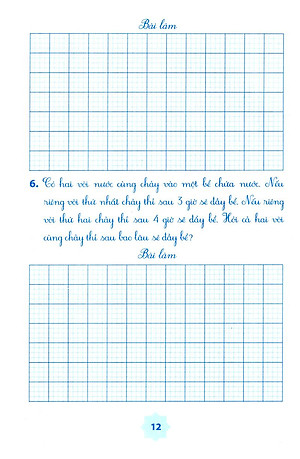 Bài làm
6. Có hai vòi nước cùng chảy vào một bể chứa nước. Nếu
riêng vòi thứ nhất chảy thì sau 3 giờ sẽ đầy bể. Nếu riêng
vòi thứ hai chảy thì sau 4 giờ sẽ đầy bể. Hỏi cả hai vòi
cùng chảy thì sau bao lâu sẽ đầy bể?
Bài làm
12